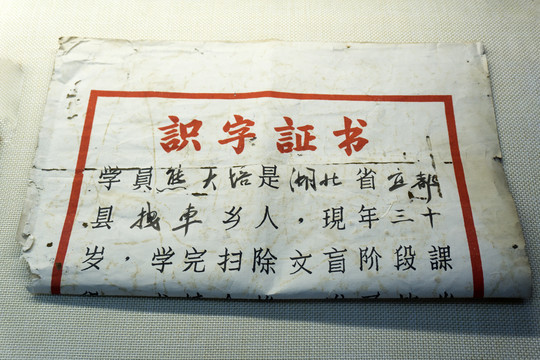 識字証书
学員熊大培是湖北省宜都
县拽車乡人，現年三十
岁，学完扫除文盲阶段課